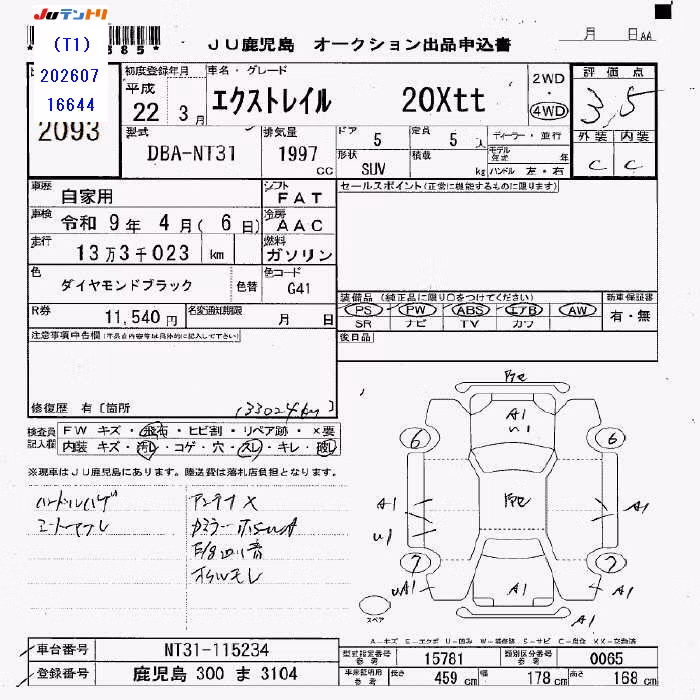 JUテントリ
(T1)
202607
16644
2093
JU鹿児島 オークション出品申込書
月 日 AA
初度登録年月
平成 22 3月
車名・グレード
エクストレイル 20Xtt
2WD
4WD
評価点
3.5
外装 内装
C C
型式
DBA-NT31
排気量
1997 CC
ドア 5
定員 5人
ディーラー・並行
形状 SUV
積載 kg
モデル年式 年
ハンドル 左・右
車歴
自家用
シフト
FAT
セールスポイント(正常に機能するものに限ります)
車検
令和 9年 4月(6日)
冷房
AAC
走行
13万3千023 km
燃料
ガソリン
色
ダイヤモンドブラック
色替
色コード
G41
装備品(純正品に限り○をつけてください)
新車保証書
PS PW ABS エアB AW
有・無
SR ナビ TV カワ
R券
11,540円
名変通知期限
月 日
後日品
注意事項申告欄
修復歴 有〔箇所
(133024km)
検査員記入欄
FW キズ・飛石・ヒビ割・リペア跡・×要
内装 キズ・汚レ・コゲ・穴・スレ・キレ・破レ
※現車はJU鹿児島にあります。陸送費は落札店負担となります。
ハンドルハゲ
アンテナX
オイルモレ
A1
6 6
A1 A1
U1
7 7
UA1 A1 A1
スペア
A-キズ E-エクボ U-凹み W-補修跡 S-サビ C-腐食 XX-交換済
車台番号
NT31-115234
型式指定番号 参考
15781
類別区分番号 参考
0065
登録番号
鹿児島 300 ま 3104
車庫証明用 参考
長さ 459 cm
幅 178 cm
高さ 168 cm